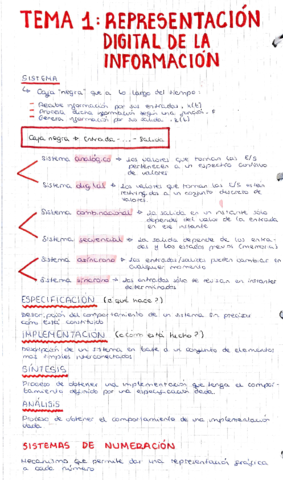 TEMA 1: REPRESENTACIÓN
DIGITAL DE LA
INFORMACIÓN
SISTEMA
↳ Caja "negra" que a lo largo del tiempo:
- Recibe información por sus entradas, x(t)
- Procesa dicha información según una función, F
- Genera información por su salida, z(t)
Caja negra → Entrada - ... - Salida
Sistema analógico → Los valores que toman las E/S
pertenecen a un espectro continuo
de valores
Sistema digital → Los valores que toman las E/S están
restringidos a un conjunto discreto de
valores.
Sistema combinacional → La salida en un instante sólo
depende del valor de la entrada
en ese instante
Sistema secuencial → La salida depende de las entra-
das y los estados previos (memoria)
Sistema asíncrono → Las entradas/salidas pueden cambiar en
cualquier momento
Sistema síncrono → Las entradas sólo se revisan en instantes
determinados
ESPECIFICACIÓN (¿qué hace?)
Descripción del comportamiento de un sistema sin precisar
cómo está constituido
IMPLEMENTACIÓN (¿cómo está hecho?)
Descripción de un sistema en base a un conjunto de elementos
más simples interconectados
SÍNTESIS
Proceso de obtener una implementación que tenga el compor-
tamiento definido por una especificación dada.
ANÁLISIS
Proceso de obtener el comportamiento de una implementación
dada.
SISTEMAS DE NUMERACIÓN
Mecanismo que permite dar una representación gráfica
a cada número